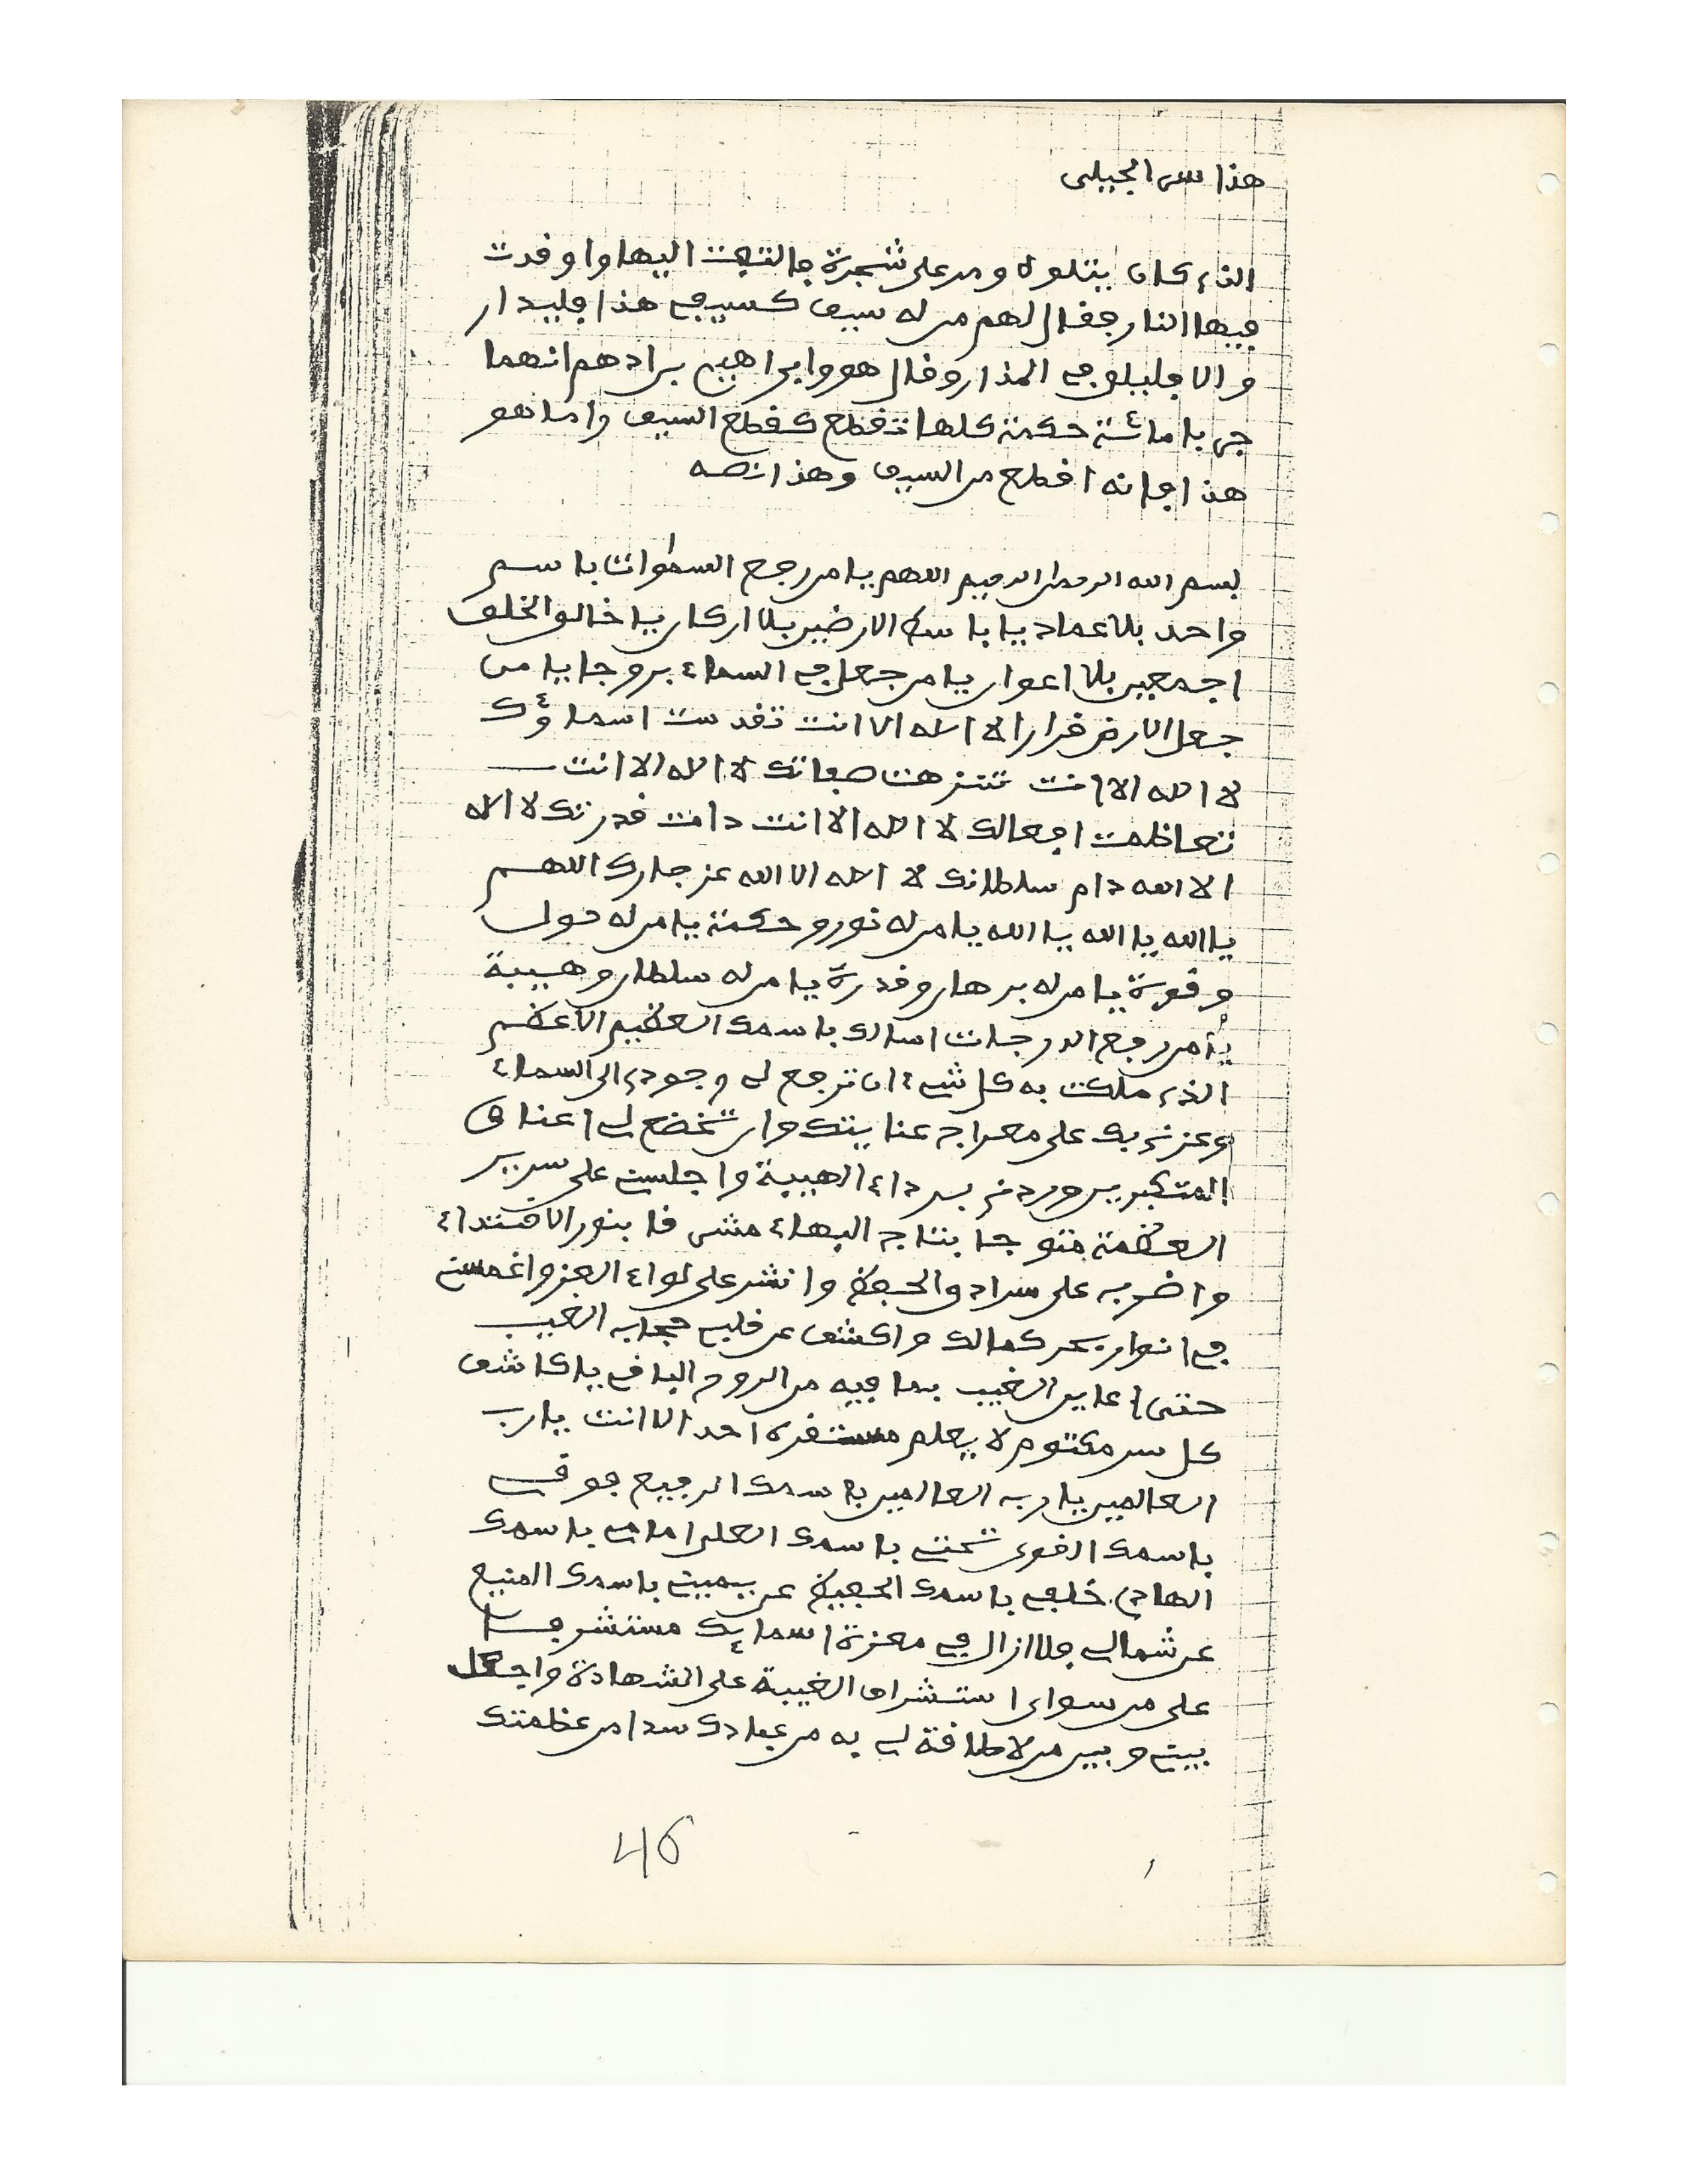 هذا سر الجيلى
الذى كان يتلوه ومر على شجرة فالتفت اليها واوقدت
فيها النار فقال لهم من له سيف كسيفي هذا فليدار
والا فليلق في المدار وقال هو وابراهيم برادهم انهما
جربا مائة حكمة كلها تقطع كقطع السيف واما هو
هذا فانه اقطع من السيف وهذا نصه
بسم الله الرحمان الرحيم اللهم يا من رفع السماوات باسم
واحد بلا عماد يا باسط الارضين بلا اركان يا خالق الخلق
اجمعين بلا اعوان يا من جعل في السماء بروجا يا من
جعل الارض قرارا لا اله الا انت تقدست اسماؤك
لا اله الا انت تنزهت صفاتك لا اله الا انت
تعاظمت افعالك لا اله الا انت دامت قدرتك لا اله
الا الله دام سلطانك لا اله الا الله عز جارك اللهم
يا الله يا الله يا الله يا من له نور وحكمة يا من له حول
وقوة يا من له برهان وقدرة يا من له سلطان وهيبة
يا من رفع الدرجات اسالك باسمك العظيم الاعظم
الذى ملكت به كل شيء ان ترفع لي وجودى الى السماء
وعززنى بك على معراج عنايتك وان تخضع لي اعناق
المتكبرين وردنى برداء الهيبة واجلسني على سرير
العظمة متوجا بتاج البهاء مشرفا بنور الاقتداء
واضرب على سرادق الحفظ وانشر على لواء العز واغمسني
في انوار بحر كمالك واكشف عن قلبي حجاب الغيب
حتى اعاين الغيب بما فيه من الروح الباقي يا كاشف
كل سر مكتوم لا يعلم مستقره احد الا انت يا رب
العالمين يا رب العالمين باسمك الرفيع فوقي
باسمك القوى تحتي باسمك العلى امامي باسمك
الهادى خلفي باسمك الحفيظ عن يميني باسمك المنيع
عن شمالي فلا ازال في معزة اسمائك مستشرفا
على من سواى استشراف الغيبة على الشهادة واجعل
بيني وبين من لا طاقة لي به من عبادك سدا من عظمتك
46